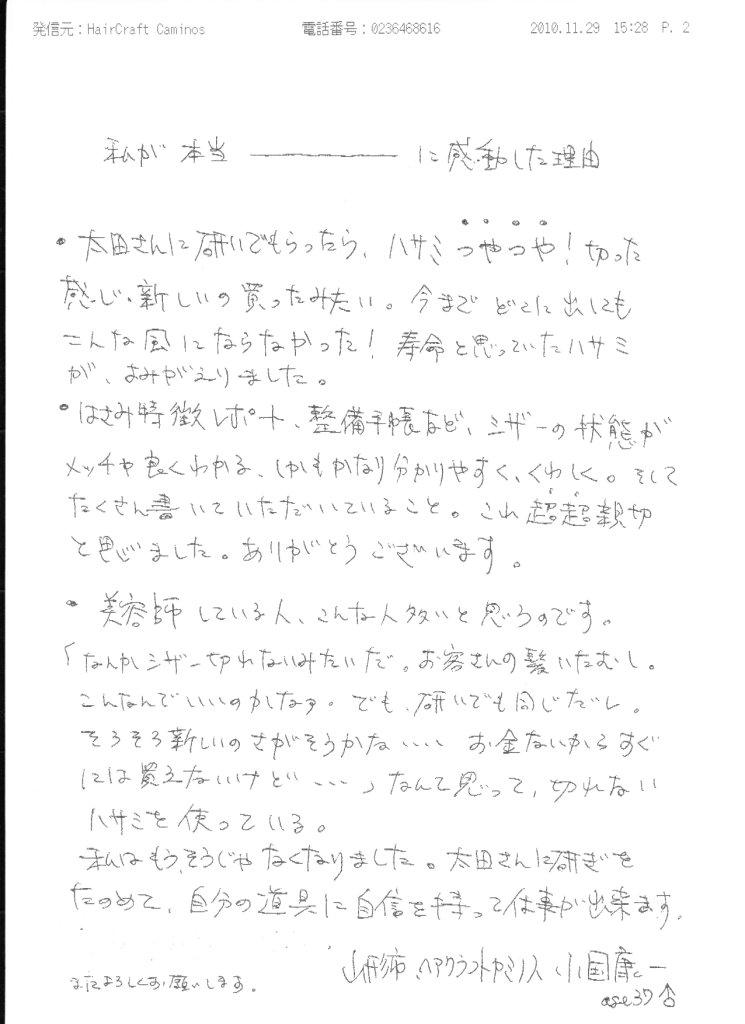 発信元:HairCraft Caminos 電話番号:0236468616 2010.11.29 15:28 P. 2
私が 本当 ――――― に感動した理由
・太田さんに研いでもらったら、ハサミつやつや!切った
感じ、新しいの買ったみたい。今まで どこに出しても
こんな風にならなかった!寿命と思っていたハサミ
が、よみがえりました。
・はさみ特徴レポート、整備手帳など、シザーの状態が
メッチャ良くわかる、しかもかなり分かりやすく、くわしく。そして
たくさん書いていただいていること。これ超超親切
と思いました。ありがとうございます。
・美容師している人、こんな人多いと思うのです。
「なんかシザー切れないみたいだ。お客さんの髪いたむし。
こんなんでいいのかなァ。でも、研いでも同じだし。
そろそろ新しいのさがそうかな・・・・ お金ないからすぐ
には買えないけど・・・」なんて思って、切れない
ハサミを使っている。
私はもう、そうじゃなくなりました。太田さんに研ぎを
たのめて、自分の道具に自信を持って仕事が出来ます。
山形市 ヘアクラフトカミノス 小国康一
またよろしくお願いします。
age37♂